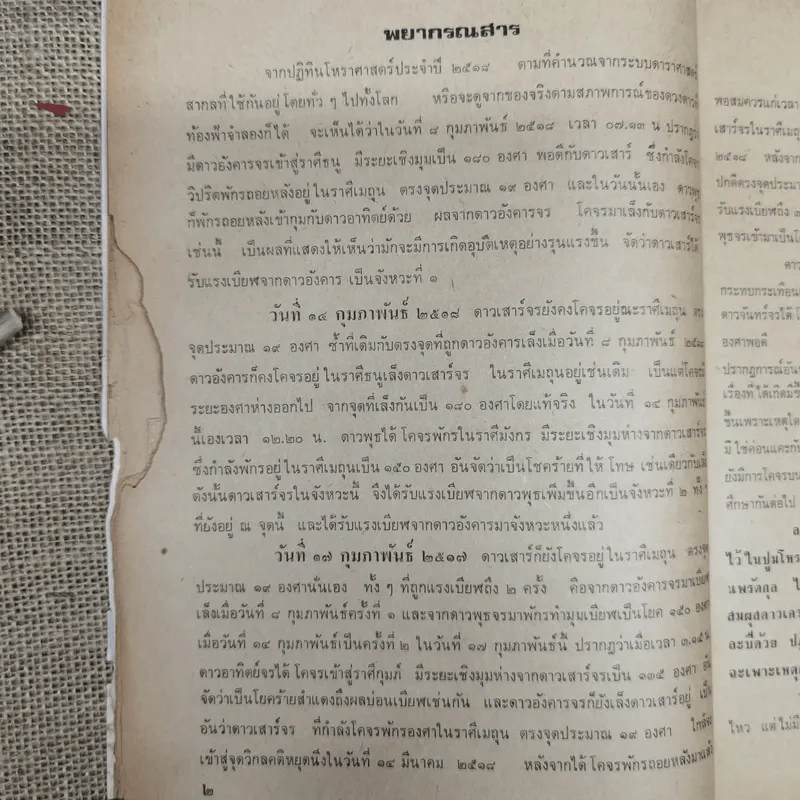 พยากรณสาร
จากปฏิทินโหราศาสตร์ประจำปี ๒๕๑๘ ตามที่คำนวณจากระบบดาราศาสตร์
สากลที่ใช้กันอยู่โดยทั่ว ๆ ไปทั้งโลก หรือจะดูจากของจริงตามสภาพการณ์ของดวงดาวที่
ท้องฟ้าจำลองก็ได้ จะเห็นได้ว่าในวันที่ ๘ กุมภาพันธ์ ๒๕๑๘ เวลา ๐๗.๑๓ น ปรากฏว่า
มีดาวอังคารจรเข้าสู่ราศีธนู มีระยะเชิงมุมเป็น ๑๘๐ องศา พอดีกับดาวเสาร์ ซึ่งกำลังโคจร
วิปริตพักรถอยหลังอยู่ในราศีเมถุน ตรงจุดประมาณ ๑๙ องศา และในวันนั้นเอง ดาวพุธ
ก็พักรถอยหลังเข้ากุมกับดาวอาทิตย์ด้วย ผลจากดาวอังคารจร โคจรมาเล็งกับดาวเสาร์จร
เช่นนี้ เป็นผลที่แสดงให้เห็นว่ามักจะมีการเกิดอุบัติเหตุอย่างรุนแรงขึ้น จัดว่าดาวเสาร์ได้
รับแรงเบียฬจากดาวอังคาร เป็นจังหวะที่ ๑
วันที่ ๑๔ กุมภาพันธ์ ๒๕๑๘ ดาวเสาร์จรยังคงโคจรอยู่ณะราศีเมถุน ตรง
จุดประมาณ ๑๙ องศา ซ้ำที่เดิมกับตรงจุดที่ถูกดาวอังคารเล็งเมื่อวันที่ ๘ กุมภาพันธ์ ๒๕๑๘
ดาวอังคารก็คงโคจรอยู่ในราศีธนูเล็งดาวเสาร์จร ในราศีเมถุนอยู่เช่นเดิม เป็นแต่โคจรมี
ระยะองศาห่างออกไป จากจุดที่เล็งกันเป็น ๑๘๐ องศาโดยแท้จริง ในวันที่ ๑๔ กุมภาพันธ์
นี้เองเวลา ๑๒.๒๐ น. ดาวพุธได้โคจรพักรในราศีมังกร มีระยะเชิงมุมห่างจากดาวเสาร์จร
ซึ่งกำลังพักรอยู่ในราศีเมถุนเป็น ๑๕๐ องศา อันจัดว่าเป็นโชคร้ายที่ให้ โทษ เช่นเดียวกับเล็ง
ดังนั้นดาวเสาร์จรในจังหวะนี้ จึงได้รับแรงเบียฬจากดาวพุธเพิ่มขึ้นอีกเป็นจังหวะที่ ๒ ทั้ง ๆ
ที่ยังอยู่ ณ จุดนี้ และได้รับแรงเบียฬจากดาวอังคารมาจังหวะหนึ่งแล้ว
วันที่ ๑๗ กุมภาพันธ์ ๒๕๑๗ ดาวเสาร์ก็ยังโคจรอยู่ในราศีเมถุน ตรงจุด
ประมาณ ๑๙ องศานั่นเอง ทั้ง ๆ ที่ถูกแรงเบียฬถึง ๒ ครั้ง คือจากดาวอังคารจรมาเบียฬ
เล็งเมื่อวันที่ ๘ กุมภาพันธ์ครั้งที่ ๑ และจากดาวพุธจรมาพักรทำมุมเบียฬเป็นโยค ๑๕๐ องศา
เมื่อวันที่ ๑๔ กุมภาพันธ์เป็นครั้งที่ ๒ ในวันที่ ๑๗ กุมภาพันธ์นี้ ปรากฏว่าเมื่อเวลา ๓.๑๕ น
ดาวอาทิตย์จรได้โคจรเข้าสู่ราศีกุมภ์ มีระยะเชิงมุมห่างจากดาวเสาร์จรเป็น ๑๓๕ องศา อัน
จัดว่าเป็นโยคร้ายสำแดงถึงผลบ่อนเบียฬเช่นกัน และดาวอังคารจรก็ยังเล็งดาวเสาร์อยู่ เป็น
อันว่าดาวเสาร์จร ที่กำลังโคจรพักรองศาในราศีเมถุน ตรงจุดประมาณ ๑๙ องศา ใกล้จะ
เข้าสู่จุดวิกลคติหยุดนิ่งในวันที่ ๑๔ มีนาคม ๒๕๑๘ หลังจากได้โคจรพักรถอยหลังมาแล้ว
๒
พอสมควรแก่เวลา
เสาร์จรในราศีเมถุน
๒๕๑๘ หลังจาก
ปกติตรงจุดประมา
รับแรงเบียฬถึง ๓
พุธจรเข้ามาเป็นโ
ดาว
กระทบกระเทือน
ดาวจันทร์จรได้โ
องศาพอดี
ปรากฏการณ์อัน
เรื่องที่ได้เกิดมีขึ้
ขึ้นเพราะเหตุใด
มิใช่ค่อนแคะกัน
ยังมีการโคจรบน
ศึกษากันต่อไป
ไว้ในปูมโหร
แพรัตกุล ไ
สมผุสดาวเคร
ละบี่ด้วย ปฏ
ฉะเพาะเหตุ
ไหว แต่ไม่มี